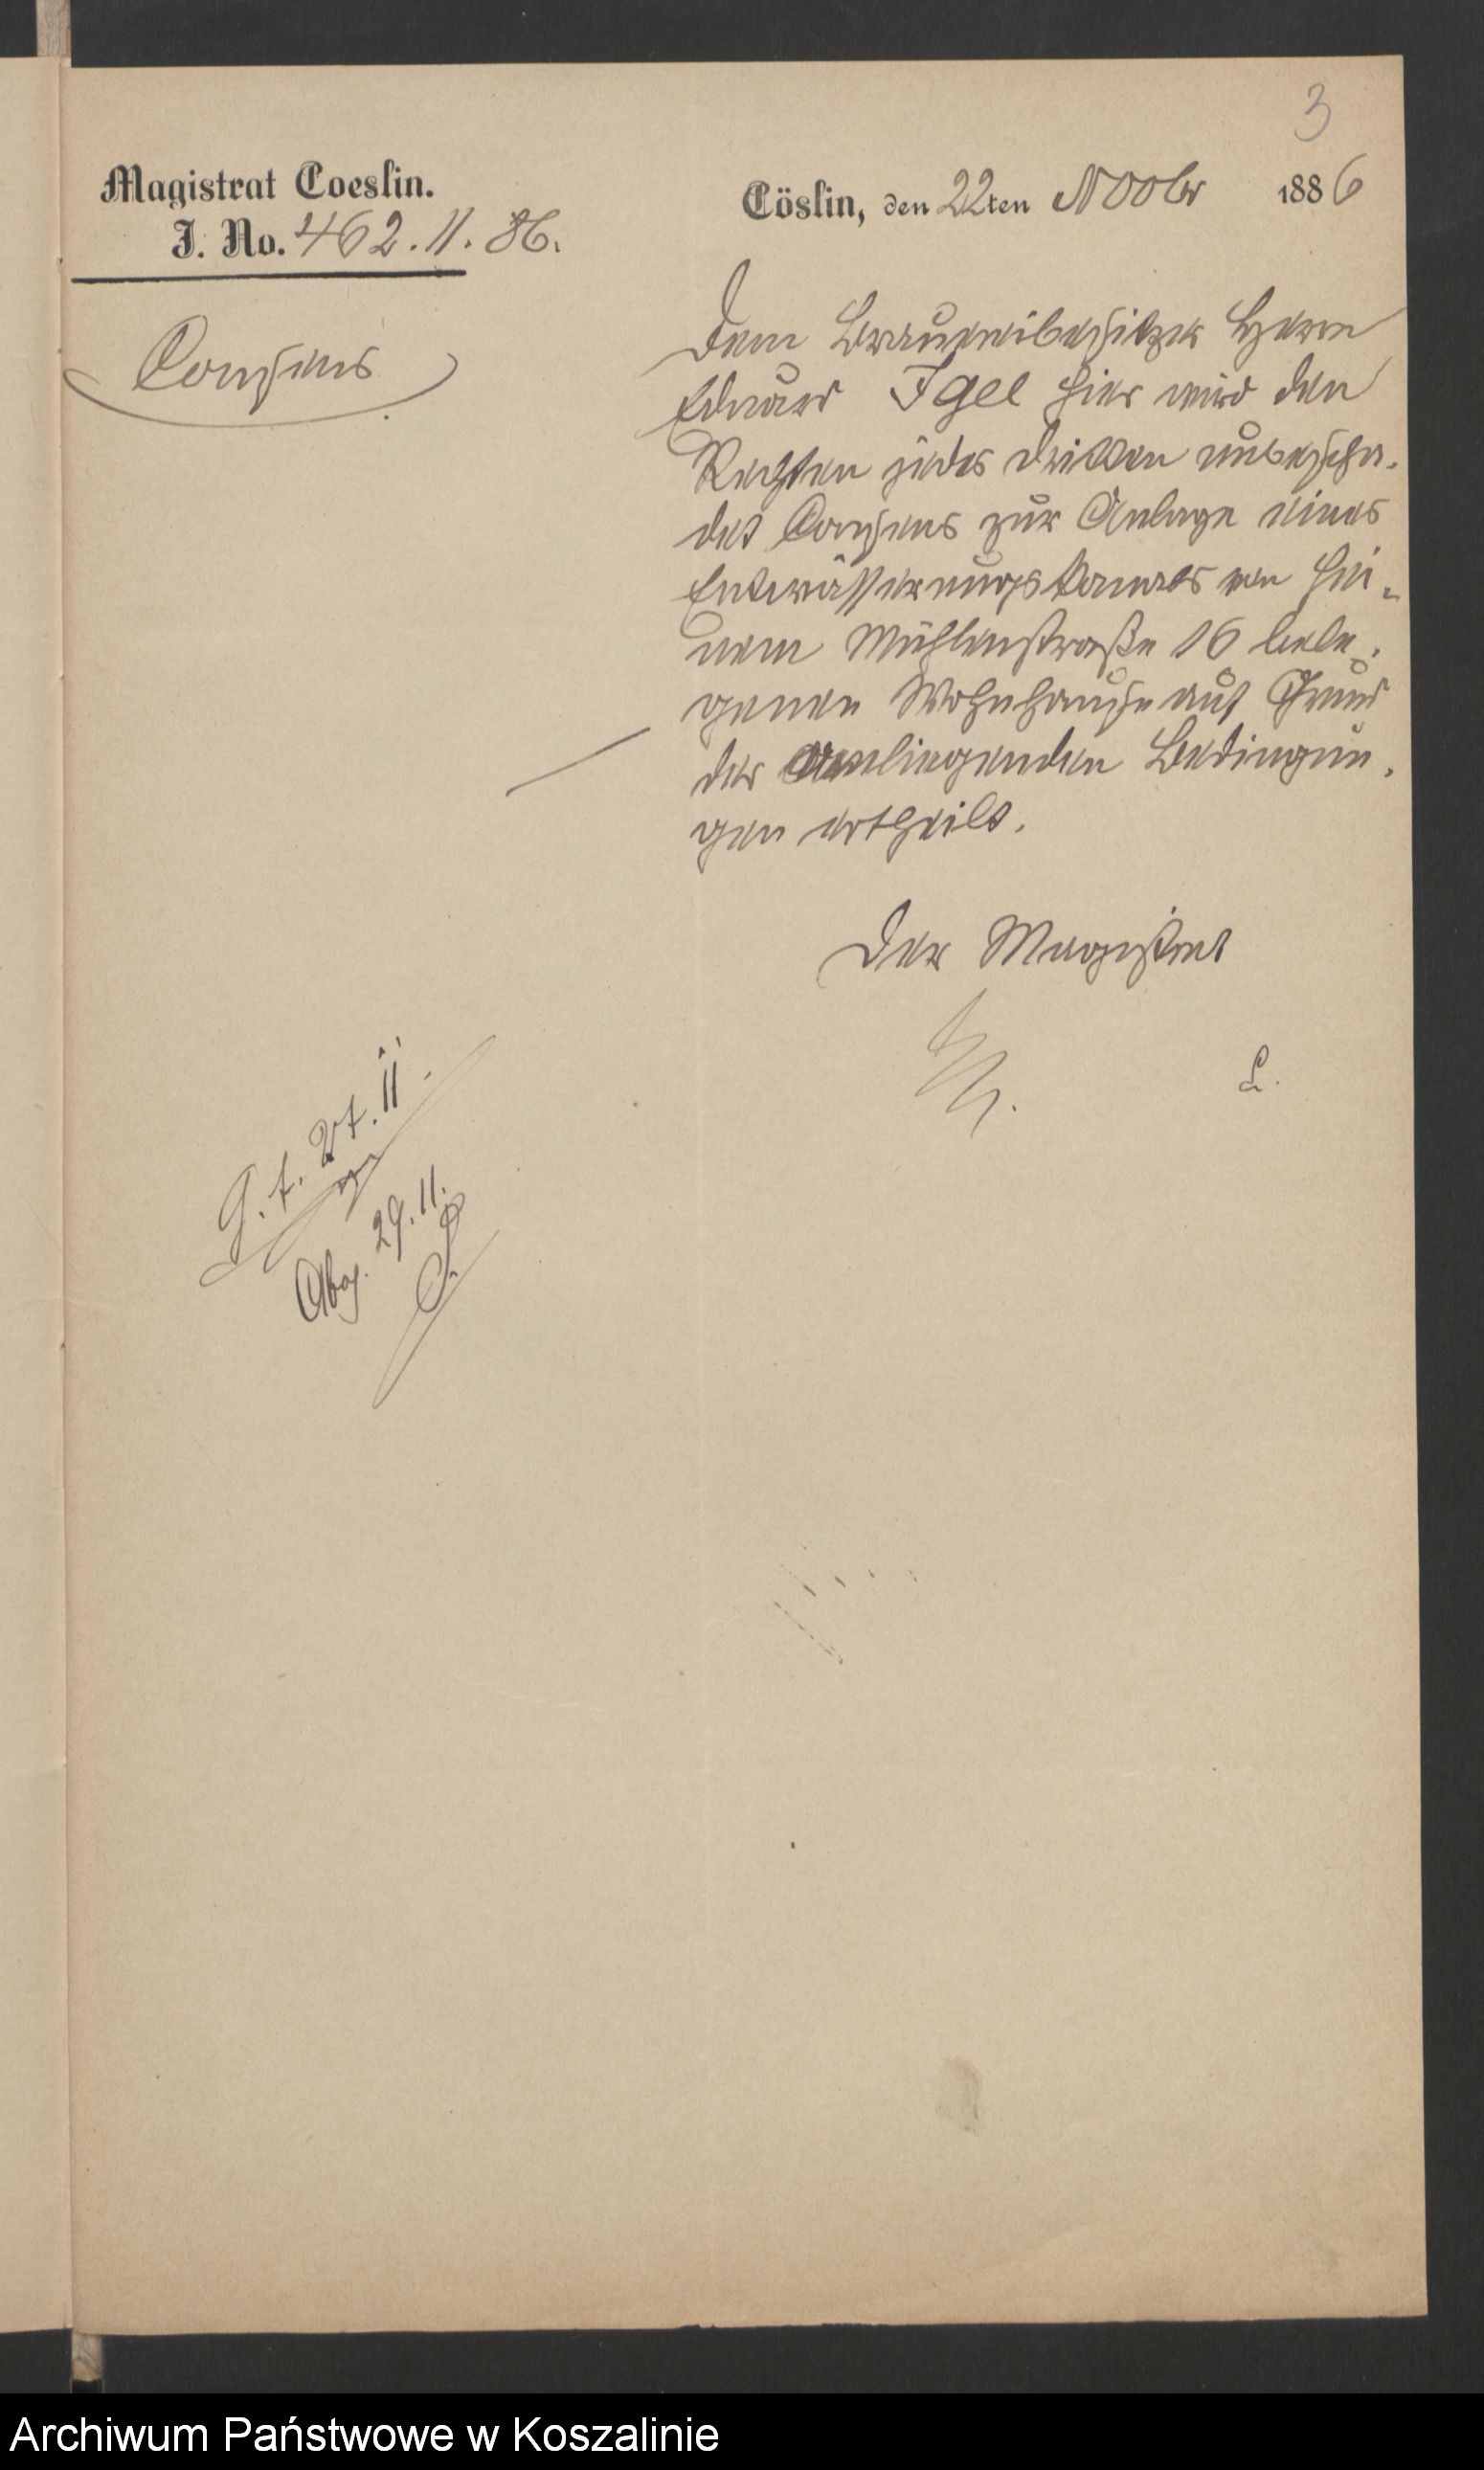 3
Magistrat Coeslin.
J. No. 462.11.86.
Cöslin, den 22ten Novbr 1886
Consens
Dem Brauereibesitzer Herrn
Eduard Igel hier wird den
Rechten jedes Dritten unbescha-
det Consens zur Anlage eines
Entwässerungskanales von sei-
nem Mühlenstraße 16 bele-
genen Wohnhause auf Grund
der anliegenden Bedingun-
gen ertheilt.
Der Magistrat
L.
G. f. 27.11.
Abg. 29.11.
Archiwum Państwowe w Koszalinie